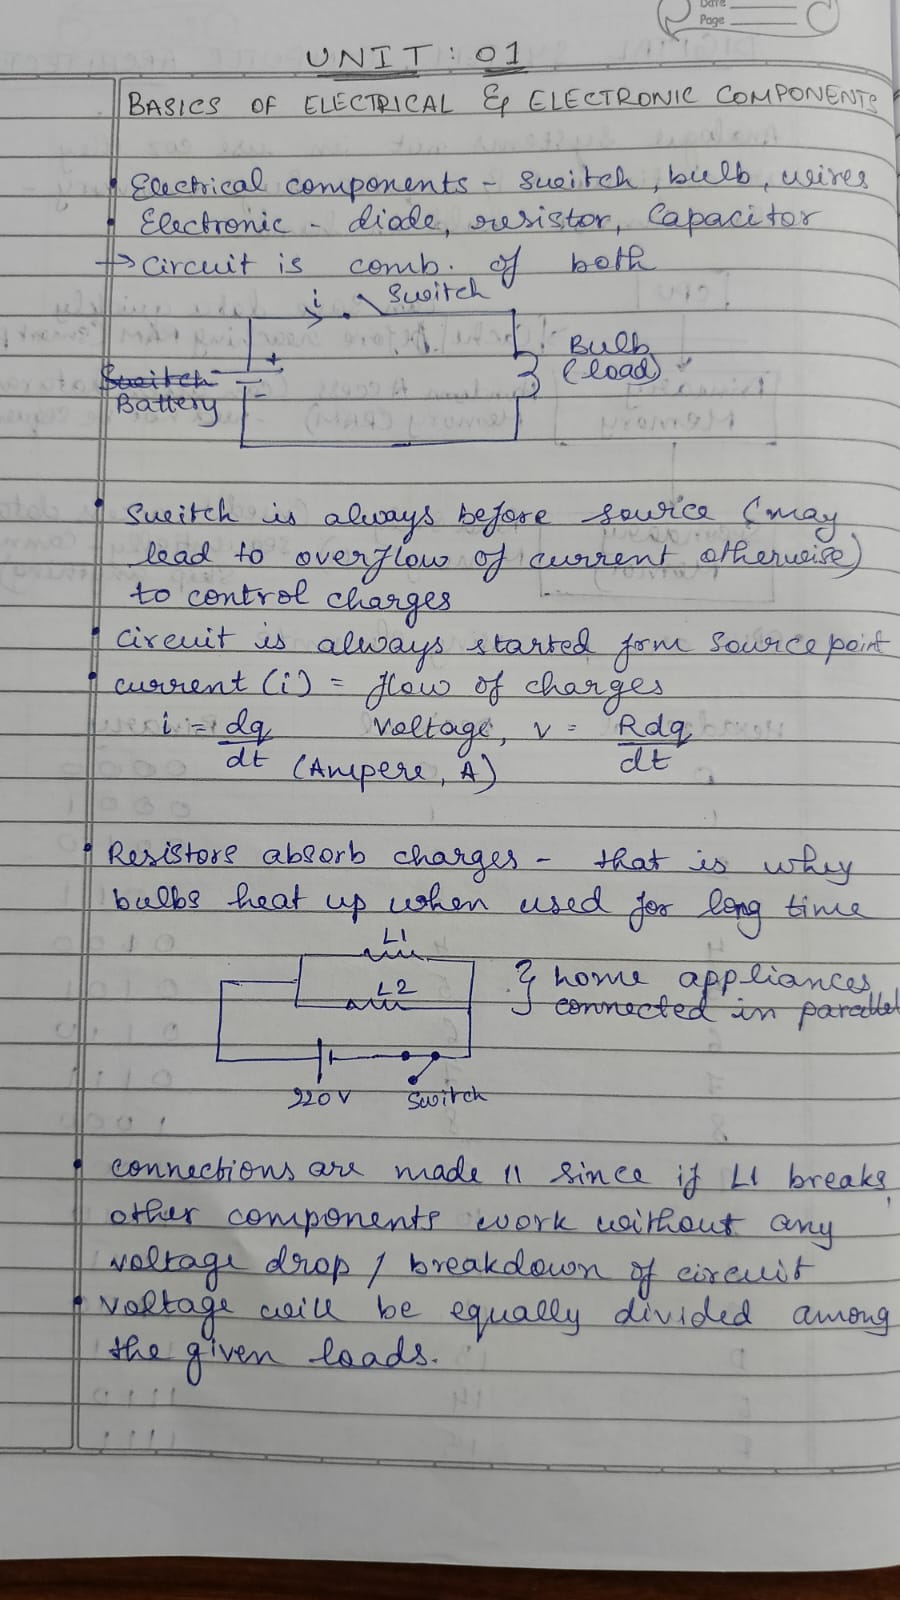 Date
Page
UNIT : 01
BASICS OF ELECTRICAL & ELECTRONIC COMPONENTS
• Electrical components - switch, bulb, wires
• Electronic - diode, resistor, Capacitor
→ Circuit is comb. of both
i Switch
+
Bulb
(load)
Switch
-
Battery
• Switch is always before source (may
lead to overflow of current otherwise)
to control charges
• circuit is always started form source point
• current (i) = flow of charges
i = dq/dt voltage, v = Rdq/dt
(Ampere, A)
• Resistors absorb charges - that is why
bulbs heat up when used for long time
L1
L2
} home appliances
connected in parallel
220V Switch
• connections are made || since if L1 breaks,
other components work without any
voltage drop / breakdown of circuit
• voltage will be equally divided among
the given loads.